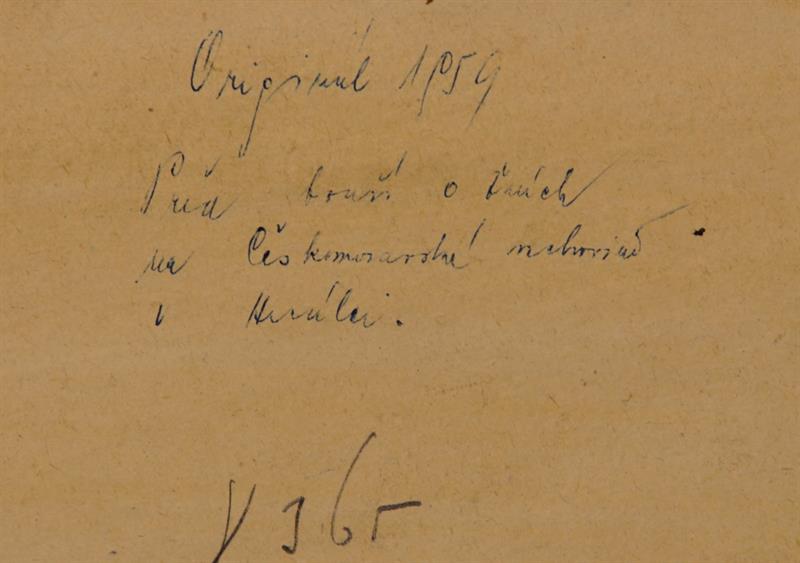 Originál 1959
Před bouří o žních
na Českomoravské vrchovině
v Herálci.
V 365